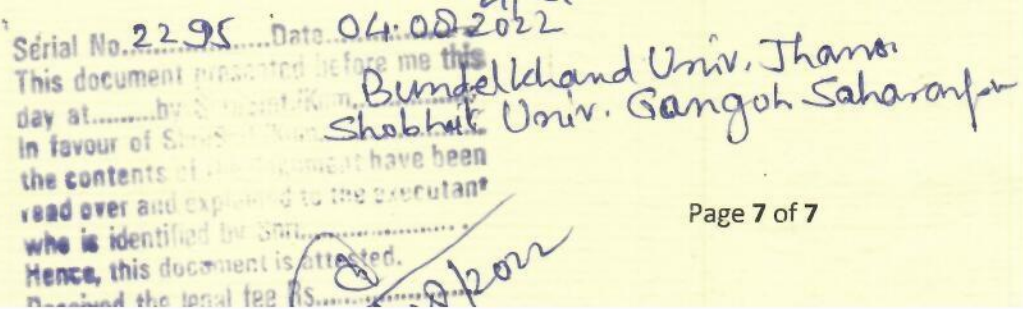 Serial No. 2295 Date 04.08.2022
This document presented before me this
Bundelkhand Univ. Jhansi
day at.........by
Shobhit Univ. Gangoh Saharanpur
In favour of
the contents of the document have been
read over and explained to the executant
who is identified by Shri
Hence, this document is attested.
Received the legal fee Rs.
/2022
Page 7 of 7